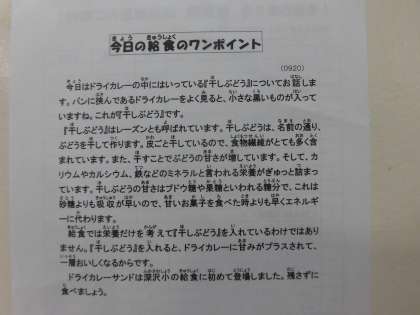 今日の給食のワンポイント
(0920)
今日はドライカレーの中にはいっている『干しぶどう』についてお話しま
す。パンに挟んであるドライカレーをよく見ると、小さな黒いものが入って
いますね。これが『干しぶどう』です。
『干しぶどう』はレーズンとも呼ばれています。干しぶどうは、名前の通り、
ぶどうを干して作ります。皮ごと干しているので、食物繊維がとても多く含
まれています。また、干すことでぶどうの甘さが増しています。そして、カ
リウムやカルシウム、鉄などのミネラルと言われる栄養がぎゅっと詰まっ
ています。干しぶどうの甘さはブドウ糖や果糖といわれる糖分で、これは
砂糖よりも吸収が早いので、甘いお菓子を食べた時よりも早くエネルギー
に代わります。
給食では栄養だけを考えて『干しぶどう』を入れているわけではあり
ません。『干しぶどう』を入れると、ドライカレーに甘みがプラスされて、
一層おいしくなるからです。
ドライカレーサンドは深沢小の給食に初めて登場しました。残さずに
食べましょう。